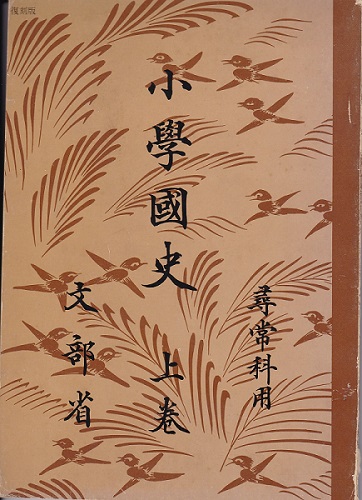 復刻版
尋常科用
小學國史 上卷
文部省